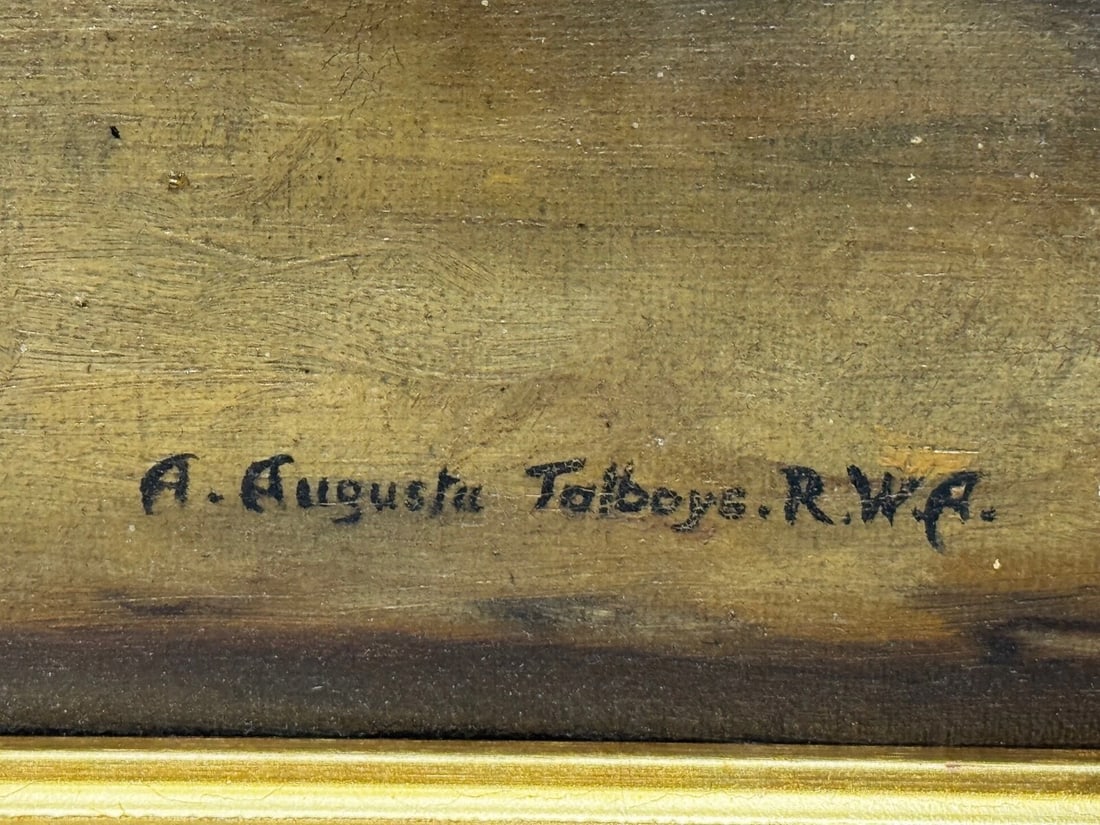 A. Augusta Talboys. R.W.A.